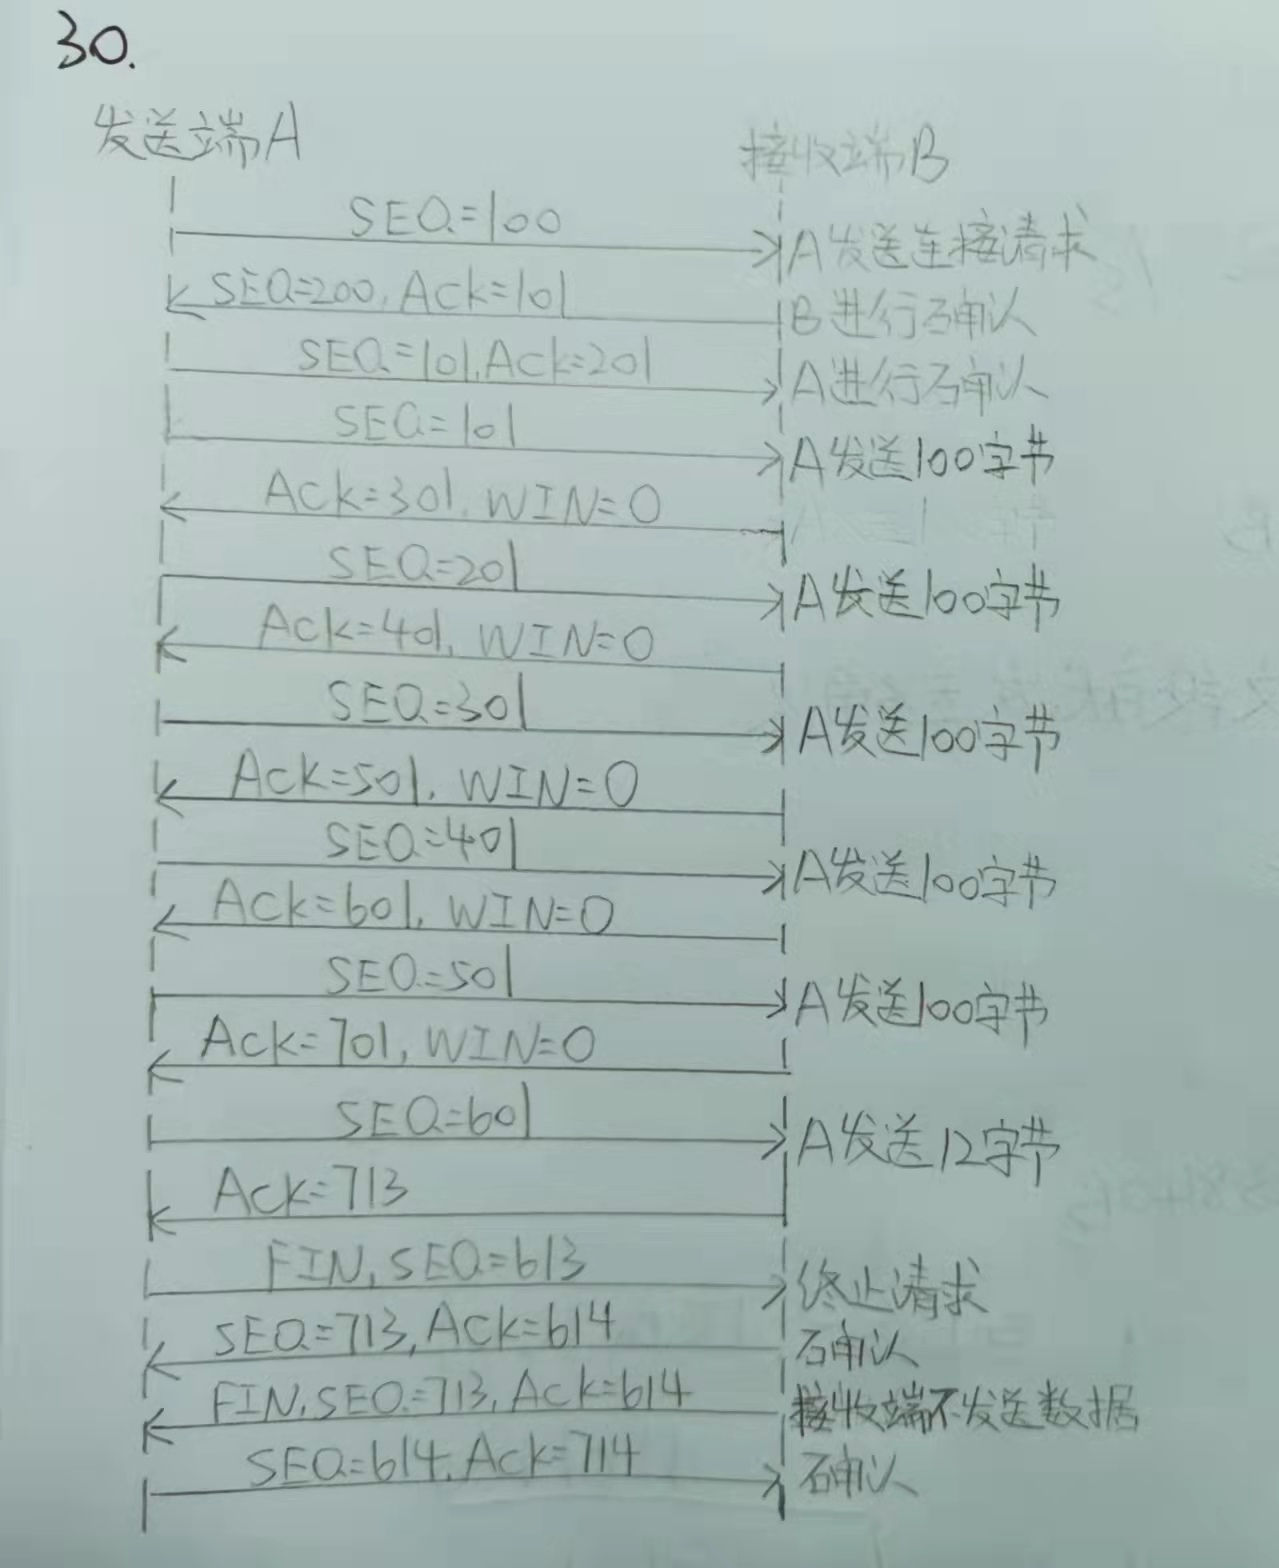 30.
发送端A 接收端B
SEQ=100 A发送连接请求
SEQ=200, Ack=101 B进行确认
SEQ=101, Ack=201 A进行确认
SEQ=101 A发送100字节
Ack=301, WIN=0
SEQ=201 A发送100字节
Ack=401, WIN=0
SEQ=301 A发送100字节
Ack=501, WIN=0
SEQ=401 A发送100字节
Ack=601, WIN=0
SEQ=501 A发送100字节
Ack=701, WIN=0
SEQ=601 A发送12字节
Ack=713
FIN, SEQ=613 终止请求
SEQ=713, Ack=614 确认
FIN, SEQ=713, Ack=614 接收端不发送数据
SEQ=614, Ack=714 确认